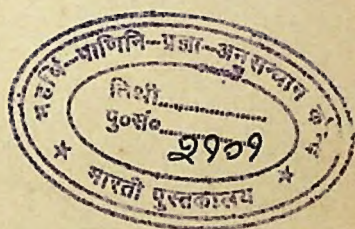 महर्षि-पाणिनि-प्रज्ञा-अनुसन्धान केन्द्र
तिथी..................
पु०सं०..................
२१०१
★ भारती पुस्तकालय ★